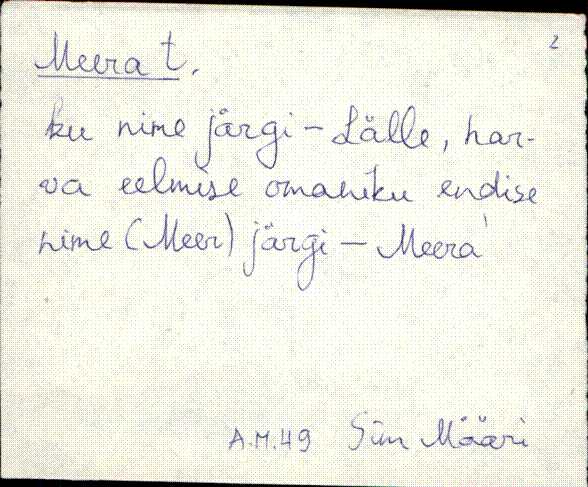 2
Meera t.
ku nime järgi – Lälle, har-
va eelmise omaniku endise
nime (Meer) järgi – Meera
A.M.49 Siin Määri